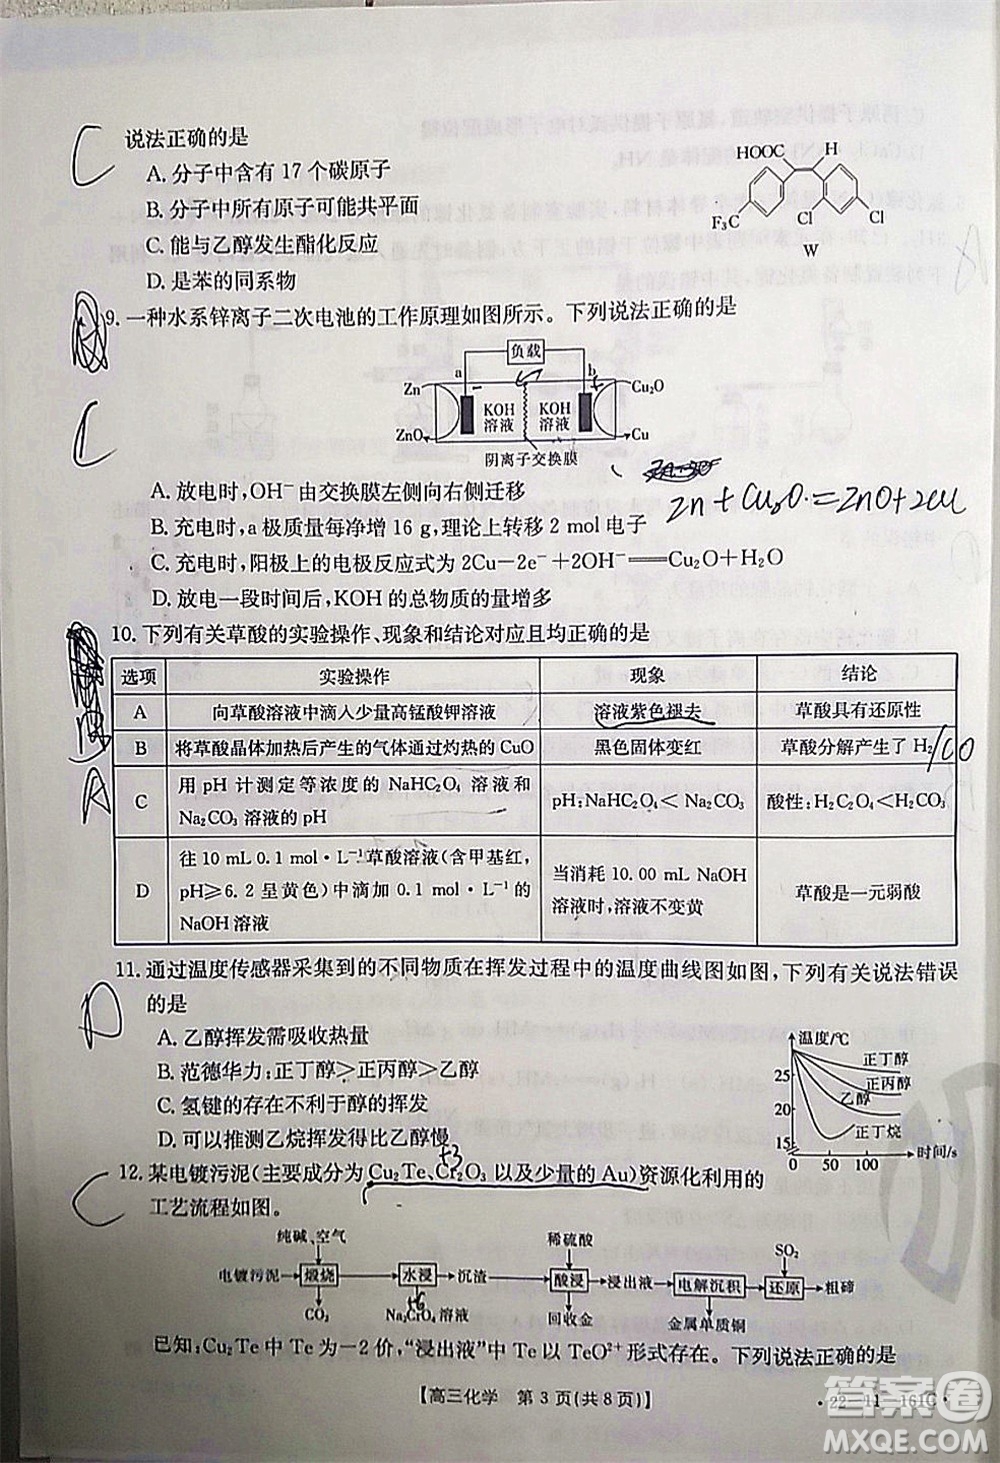 C
说法正确的是
A. 分子中含有 17 个碳原子
B. 分子中所有原子可能共平面
C. 能与乙醇发生酯化反应
D. 是苯的同系物
HOOC H
F₃C Cl Cl
W
9. 一种水系锌离子二次电池的工作原理如图所示。下列说法正确的是
C
负载
a b
Zn Cu₂O
KOH 溶液 KOH 溶液
ZnO Cu
阴离子交换膜
Zn+Cu₂O=ZnO+2Cu
A. 放电时,OH⁻由交换膜左侧向右侧迁移
B. 充电时,a 极质量每净增 16 g,理论上转移 2 mol 电子
C. 充电时,阳极上的电极反应式为 2Cu-2e⁻+2OH⁻══Cu₂O+H₂O
D. 放电一段时间后,KOH 的总物质的量增多
10. 下列有关草酸的实验操作、现象和结论对应且均正确的是
A
选项 实验操作 现象 结论
A 向草酸溶液中滴入少量高锰酸钾溶液 溶液紫色褪去 草酸具有还原性
B 将草酸晶体加热后产生的气体通过灼热的 CuO 黑色固体变红 草酸分解产生了 H₂ /CO
C 用 pH 计测定等浓度的 NaHC₂O₄ 溶液和 Na₂CO₃ 溶液的 pH pH:NaHC₂O₄< Na₂CO₃ 酸性:H₂C₂O₄<H₂CO₃
D 往 10 mL 0.1 mol·L⁻¹草酸溶液(含甲基红,pH≥6.2 呈黄色)中滴加 0.1 mol·L⁻¹的 NaOH 溶液 当消耗 10.00 mL NaOH 溶液时,溶液不变黄 草酸是一元弱酸
11. 通过温度传感器采集到的不同物质在挥发过程中的温度曲线图如图,下列有关说法错误
的是
D
A. 乙醇挥发需吸收热量
B. 范德华力:正丁醇>正丙醇>乙醇
C. 氢键的存在不利于醇的挥发
D. 可以推测乙烷挥发比乙醇慢
温度/℃
正丁醇
25
正丙醇
乙醇
20
正丁烷
15
0 50 100 时间/s
+3
12. 某电镀污泥(主要成分为 Cu₂Te、Cr₂O₃ 以及少量的 Au)资源化利用的
C
工艺流程如图。
纯碱、空气 稀硫酸 SO₂
电镀污泥 煅烧 水浸 沉渣 酸浸 浸出液 电解沉积 还原 粗碲
+6
CO₂ Na₂CrO₄ 溶液 回收金 金属单质铜
已知:Cu₂Te 中 Te 为-2 价,“浸出液”中 Te 以 TeO²⁺形式存在。下列说法正确的是
【高三化学 第 3 页(共 8 页)】
·22—11—161C·
答案圈
MXQE.COM